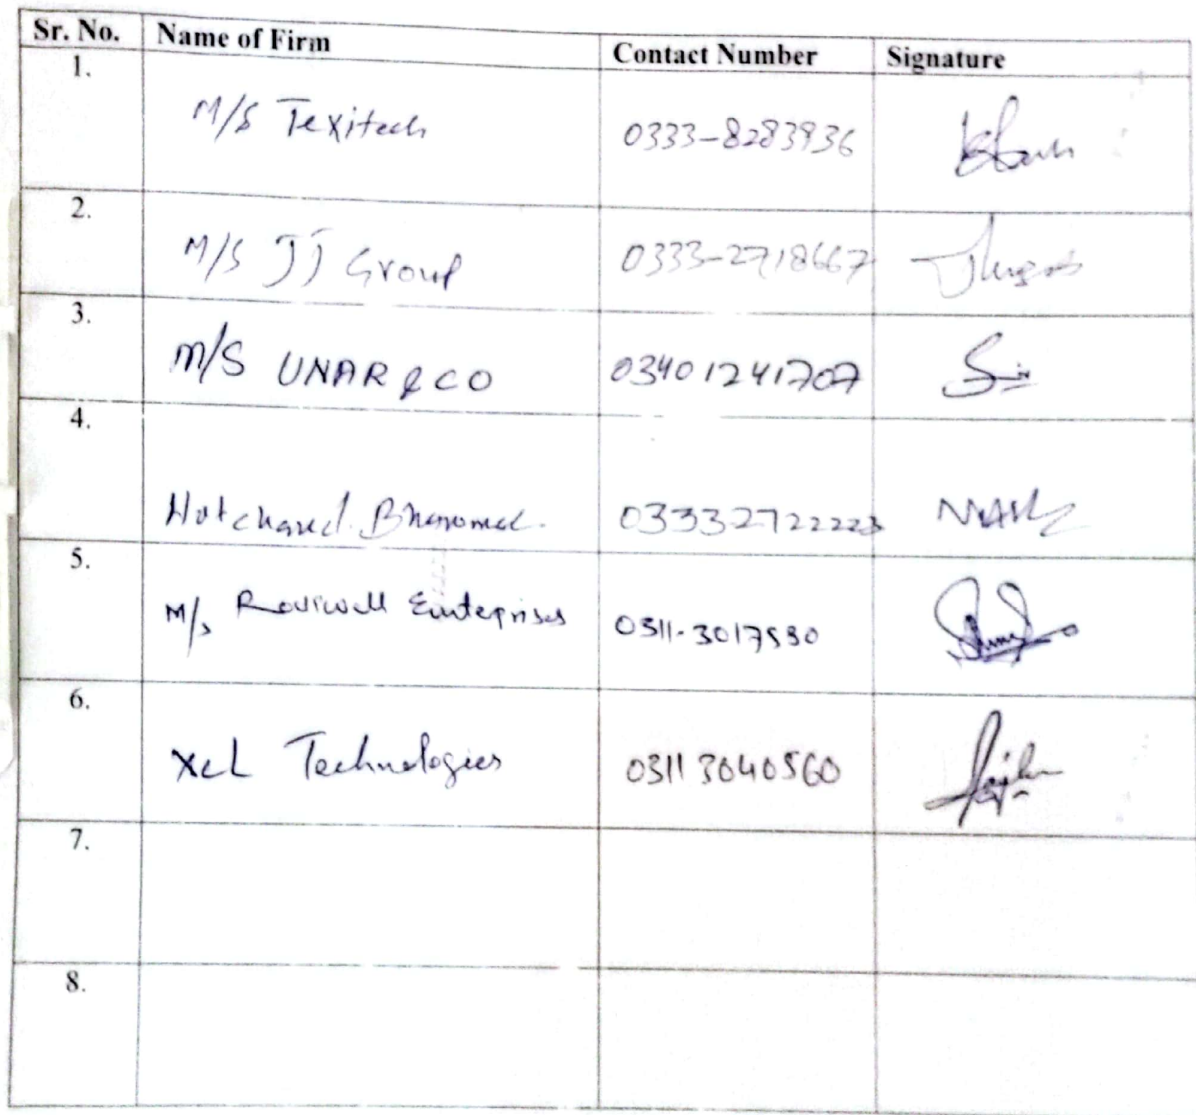 Sr. No. Name of Firm Contact Number Signature
1. M/S Texitech 0333-8283936
2. M/S JJ Group 0333-2718667
3. M/S UNAR & CO 03401241707
4. Hotchand 03332722223
5. M/s Enteprises
6. XcL Technologies 03113040560
7.
8.